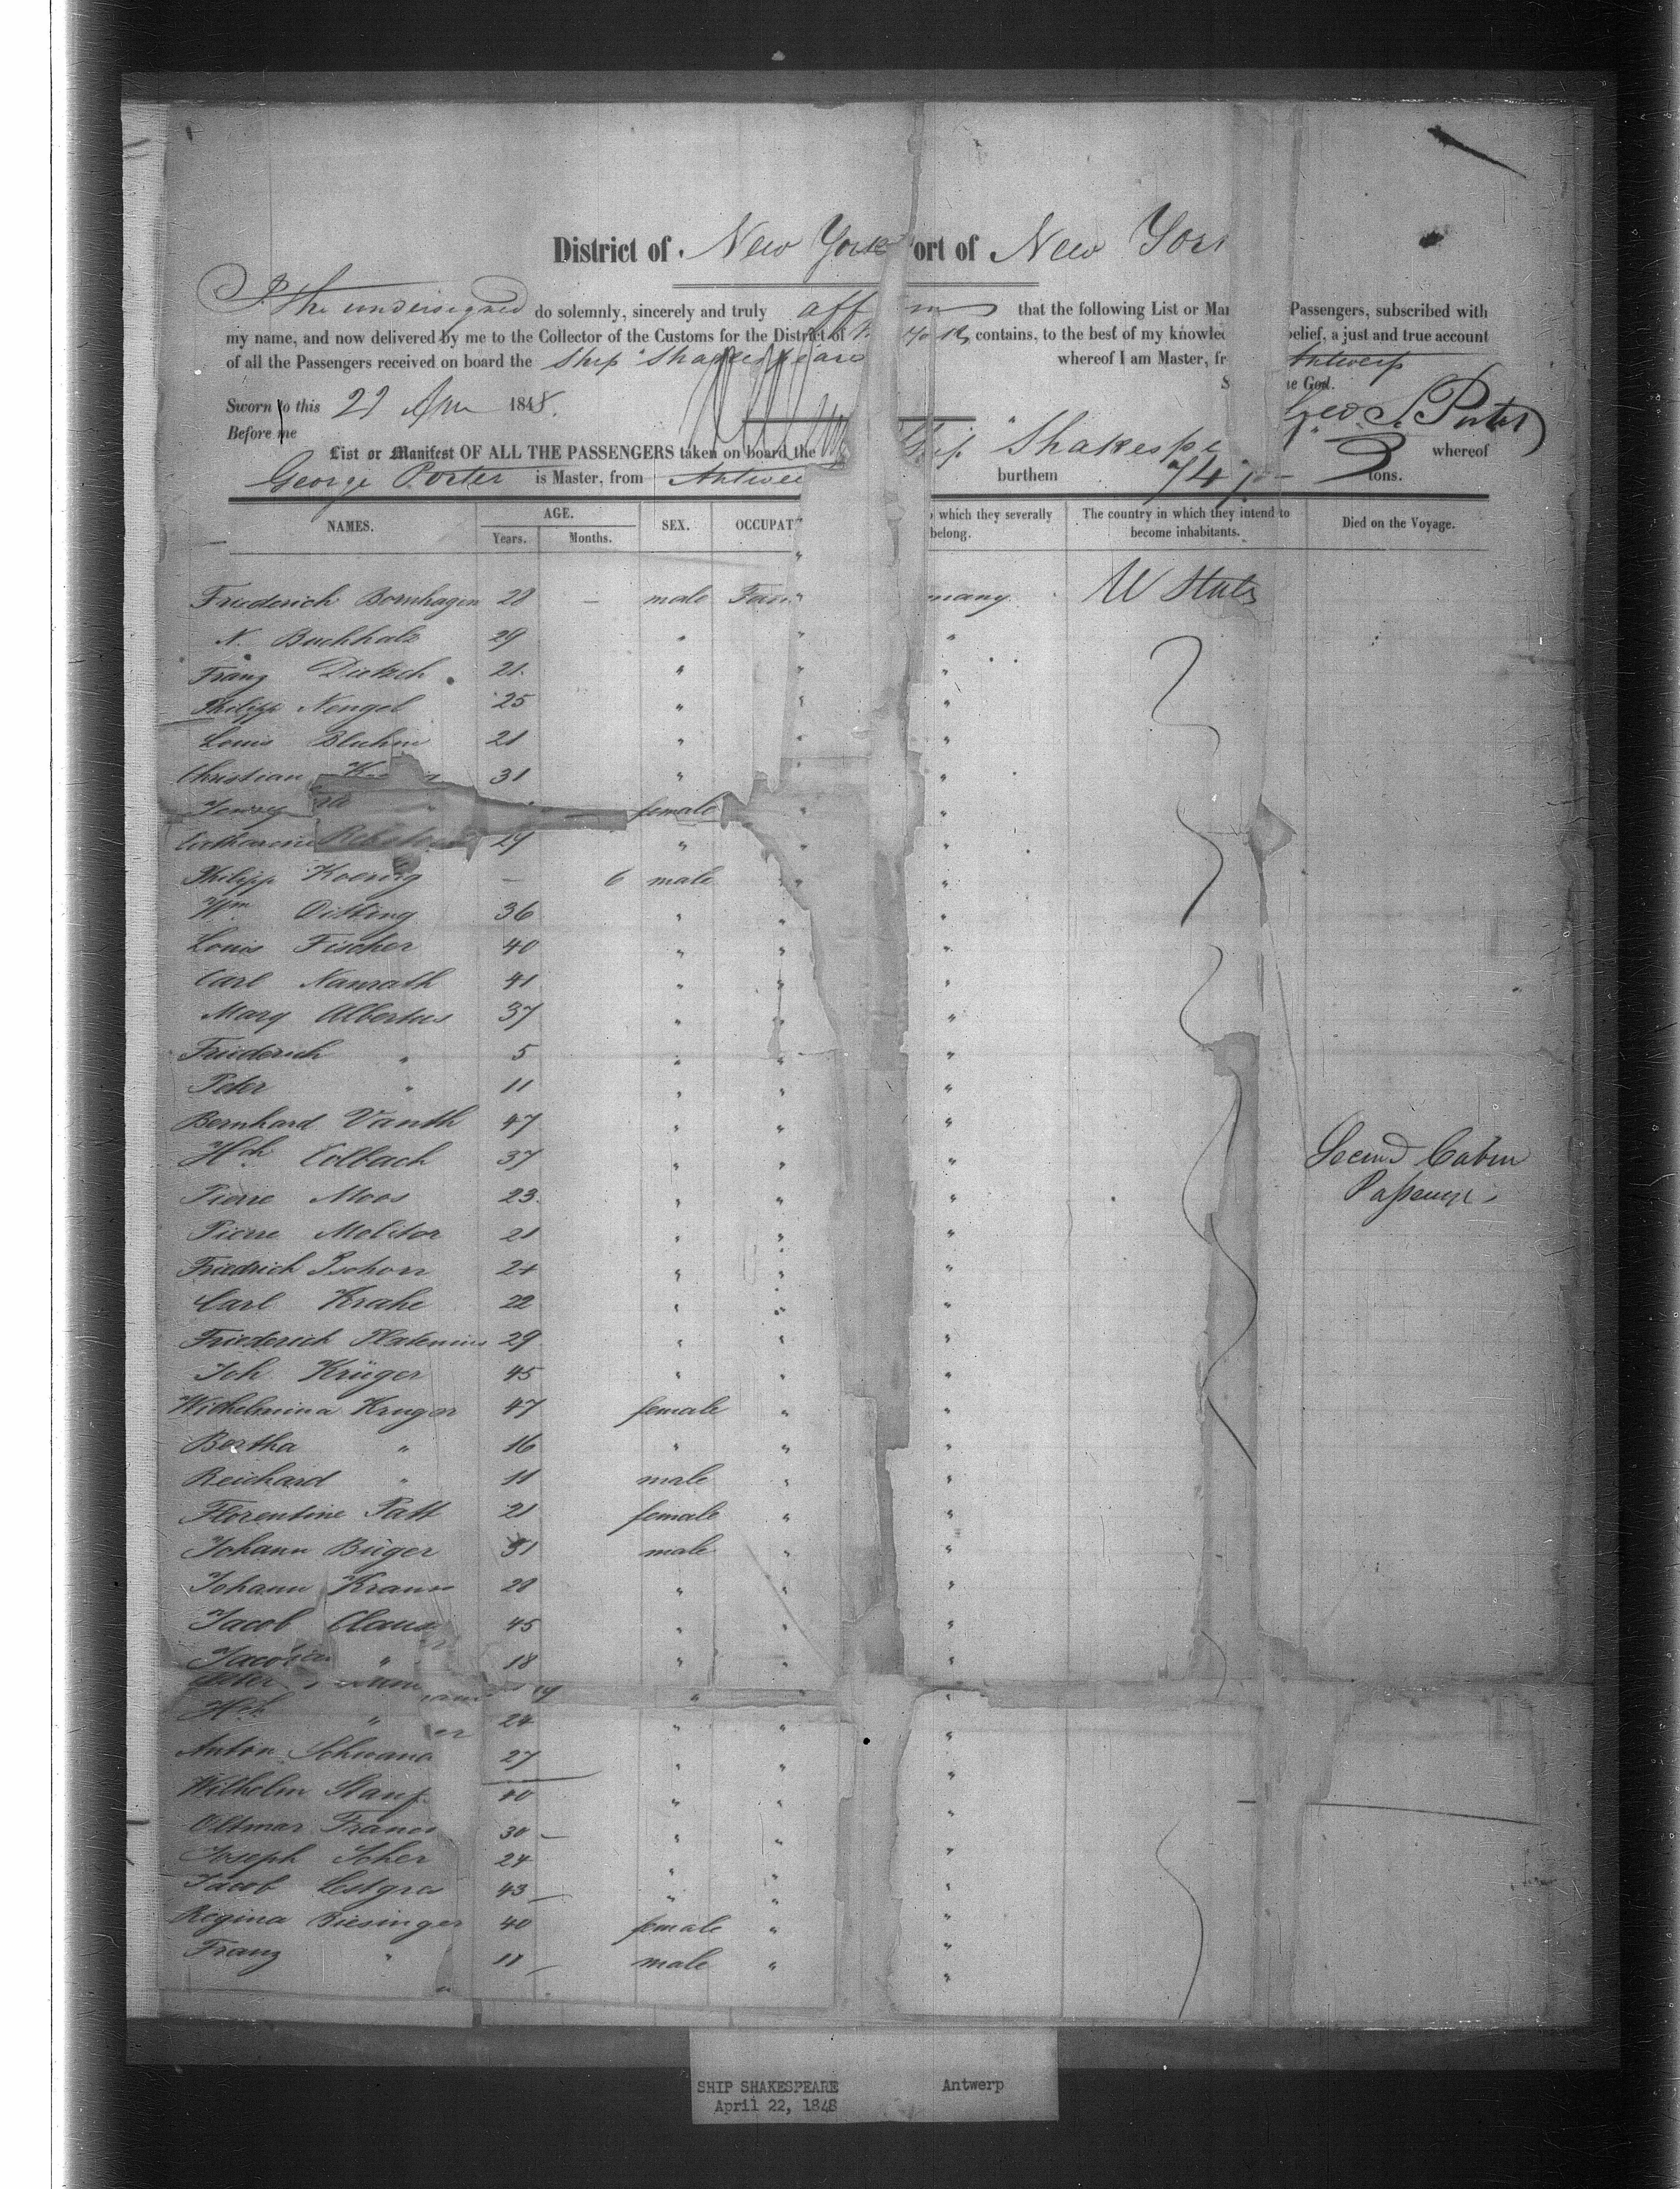 District of New York ort of New Yor
I the undersigned do solemnly, sincerely and truly aff m that the following List or Ma Passengers, subscribed with
my name, and now delivered by me to the Collector of the Customs for the District of contains, to the best of my knowle belief, a just and true account
of all the Passengers received on board the Ship Shakespeare whereof I am Master, fr Antwerp
Sworn to this 22 Apr 1848. S e God.
Before me Geo. S. Porter
List or Manifest OF ALL THE PASSENGERS taken on board the Ship Shakespe whereof
George Porter is Master, from Antwe burthem 747 tons.
NAMES. AGE. Years. Months. SEX. OCCUPAT which they severally belong. The country in which they intend to become inhabitants. Died on the Voyage.
Friederich Bornhagen 28 — male Far many U States
N. Buchholz 29 " " "
Franz Dietzch 21 " " "
Philipp Nengel 25 " " "
Louis Bluhm 21 " " "
Christian 31 " "
female " "
Catharine 29 " " "
Philipp Koenig — 6 male " "
Wm Oitting 36 " " "
Louis Fischer 40 " " "
Carl Namrath 41 " " "
Marg Albertus 37 " " "
Friederich " 5 " " "
Peter " 11 " " "
Bernhard Vanth 47 " " "
Hch Colbach 37 " " " Second Cabin
Pierre Moos 23 " " " Passenge
Pierre Melitor 21 " " "
Friedrich Pschorr 24 " " "
Carl Krahe 22 " " "
Friederich Platenius 29 " " "
Joh Krüger 45 " " "
Wilhelmina Kruger 47 female " "
Bertha " 16 " " "
Reichard " 11 male " "
Florentine Patt 21 female " "
Johann Büger 31 male " "
Johann Kraun 28 " " "
Jacob Claus 45 " " "
Jacob " 18 " " "
19 " " "
Hch " 24 " " "
Anton Schwana 27 " " "
Wilhelm Stauf 40 " " "
Oltmar Franc 30 — " " "
Joseph Scher 24 " " "
Jacob Lestgres 43 — " " "
Regina Biesinger 40 female " "
Franz " 11 — male " "
SHIP SHAKESPEARE Antwerp
April 22, 1848